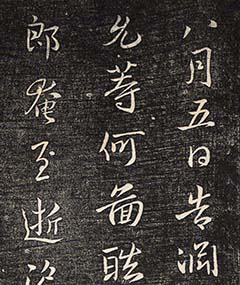 八月五日告淵
允等何圖酷
郎奄至逝沒